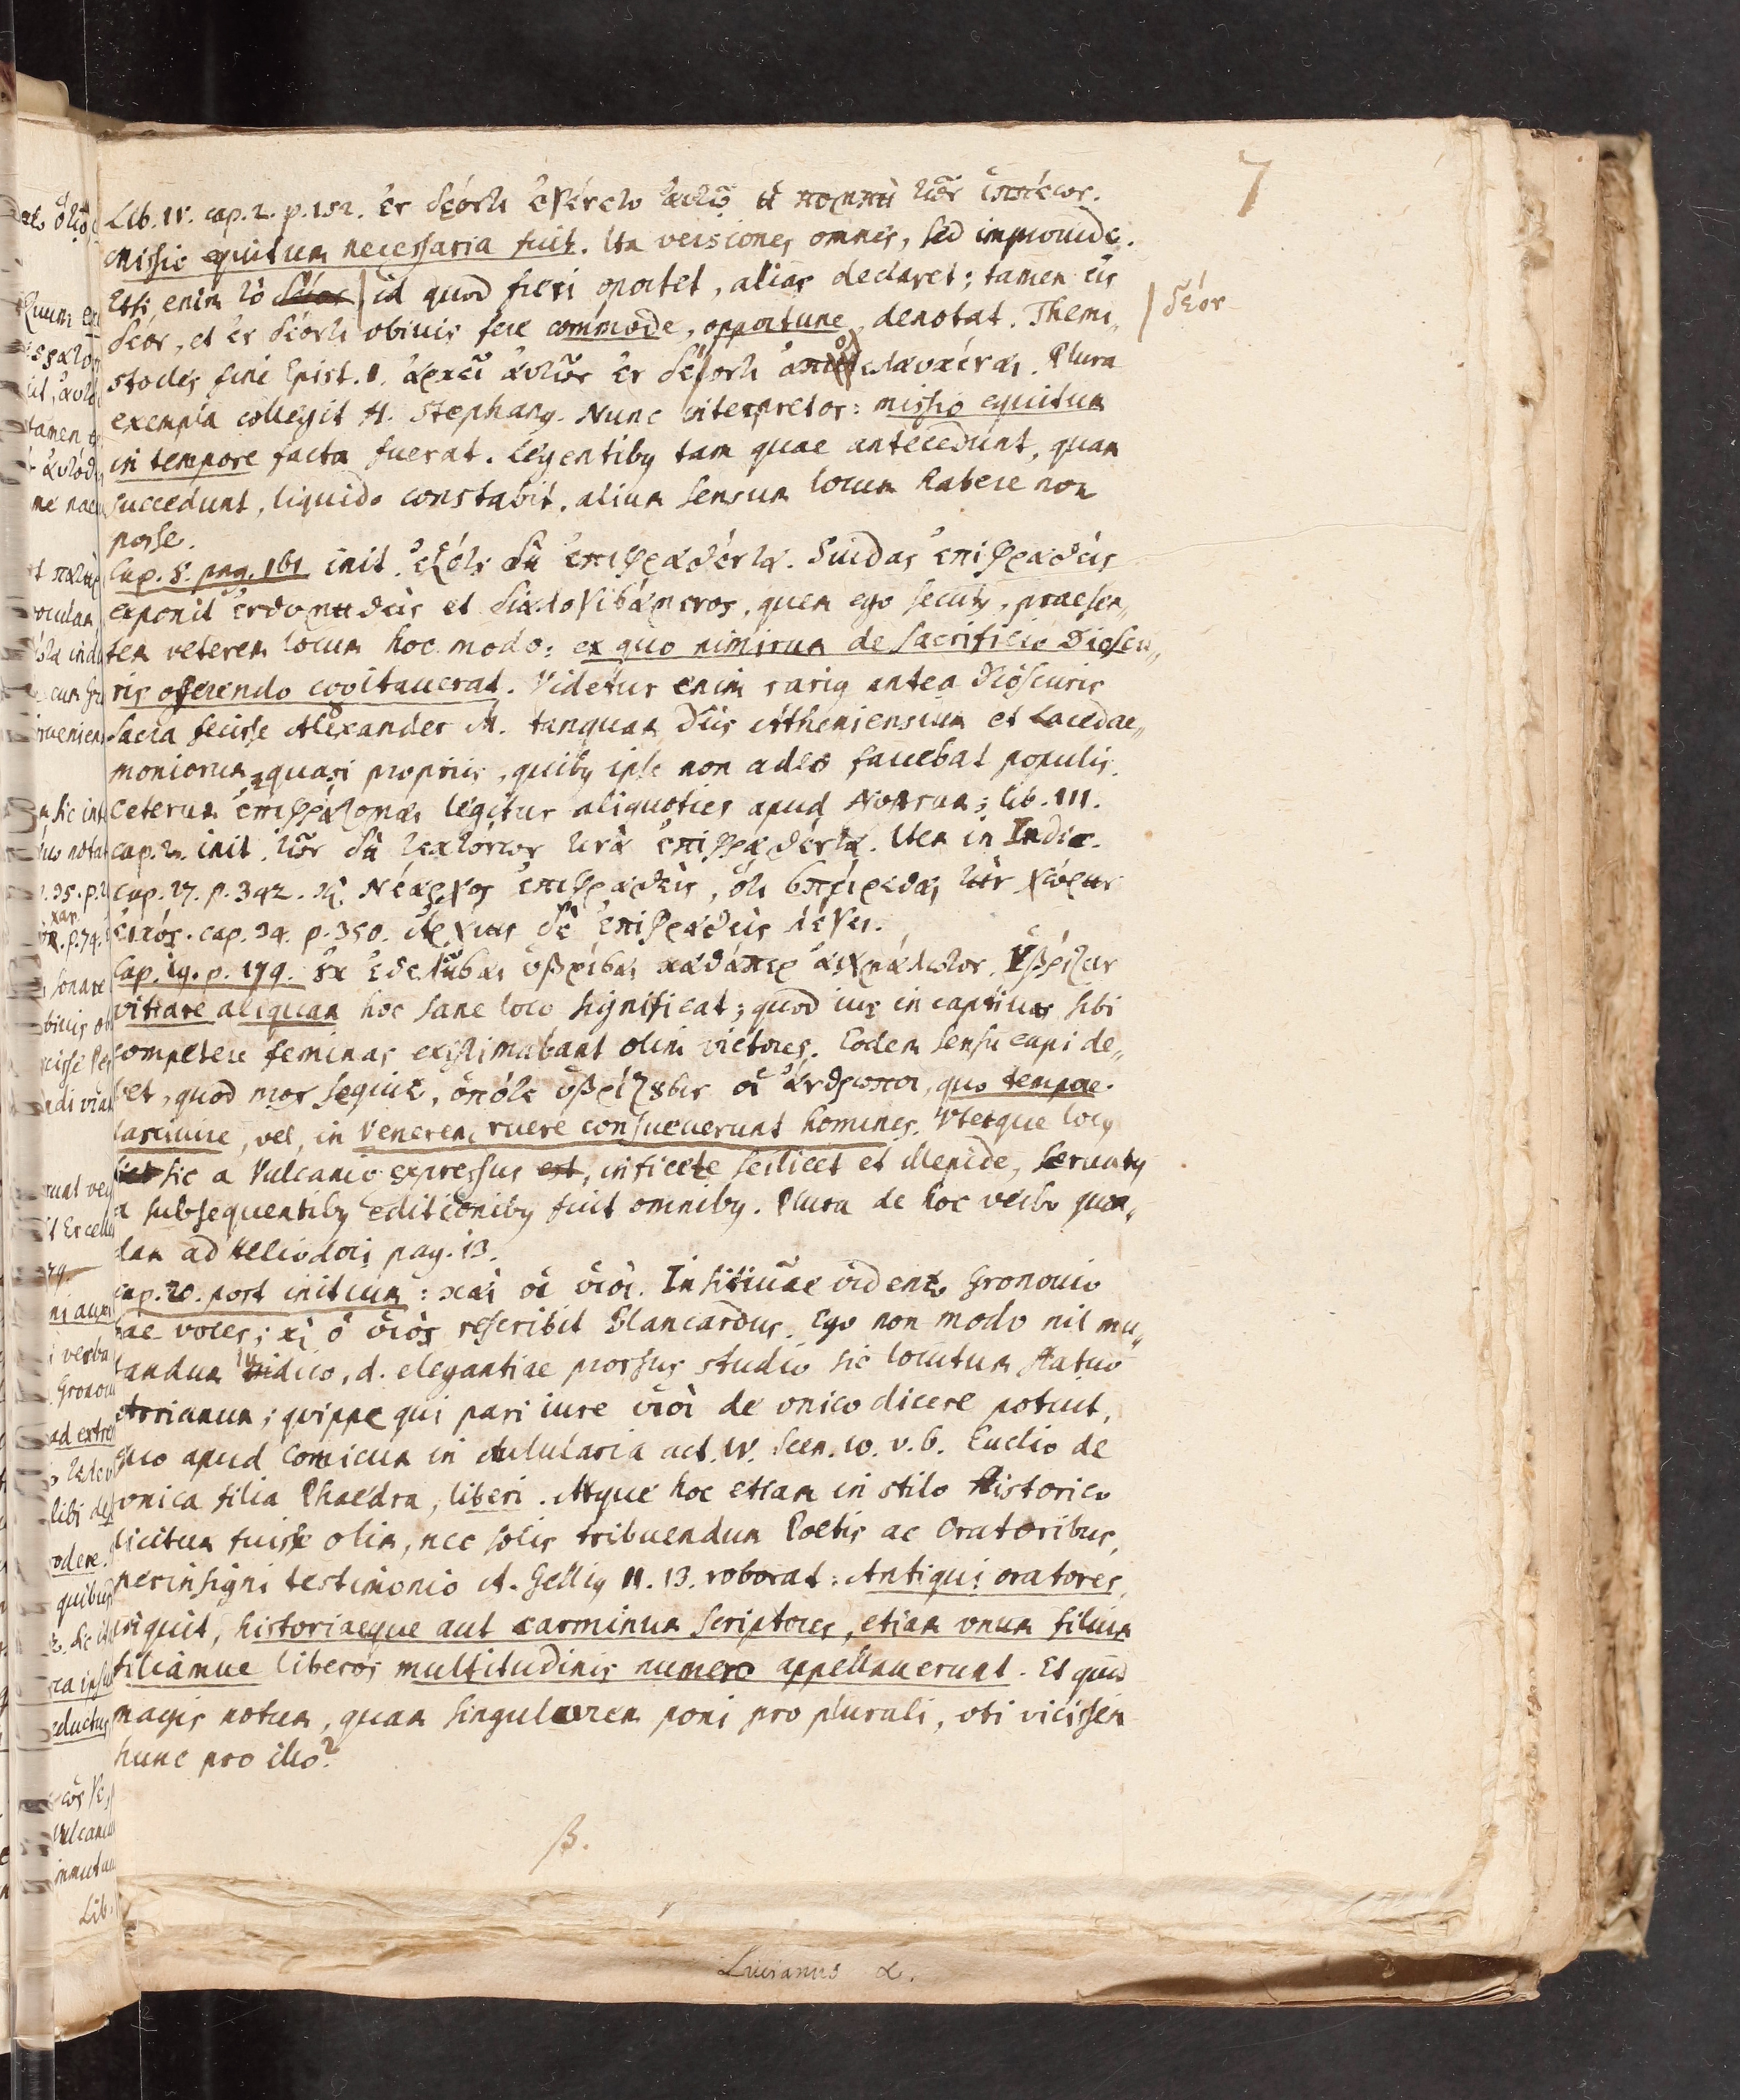 7
Lib. IV. cap. 2. p. 152. ἐν δέοντι ἐγένετο αὐτῷ ἡ πομπὴ τῶν ἱππέων.
missio equitum necessaria fuit. Ita versiones omnes, sed improuide.
Etsi enim τὸ id quod fieri oportet, alias declaret; tamen εἰς
δέον
δέον, et ἐν δέοντι obiuis fere commode, opportune denotat. Themi„
stocles fine Epist. 1. ἀρκεῖ αὐτῶν ἐν δέοντι . Plura
exempla collegit H. Stephanus. Nunc interpretor: missio equitum
in tempore facta fuerat. Legentibus tam quae antecedunt, quam
succedunt, liquido constabit, alium sensum locum habere non
posse.
Cap. 8. pag. 161 init. ἐξότε δὴ ἐπιφρασθέντα. Suidas ἐπιφρασθεὶς
exponit ἐνθυμηθεὶς et διαλογισάμενος, quem ego secutus, praesen„
tem veterem locum hoc modo: ex quo nimirum de sacrificio Dioscu„
ris offerendo cogitauerat. Videtur enim rarius antea Dioscuris
sacra fecisse Alexander M. tanquam Diis Atheniensium et Lacedae„
moniorum quasi propriis, quibus ipse non adeo fauebat populis.
Ceterum ἐπιφράζομαι legitur aliquoties apud Nostrum; lib. III.
cap. 2. init. τῶν δὴ τεκτόνων τινὰ ἐπιφρασθέντα. Item in Indic.
cap. 27. p. 342. καὶ Νέαρχος ἐπιφρασθεὶς, ὅτι τὴν χώρην
εἰκός. cap. 34. p. 350. Ἀρχίης δὲ ἐπιφρασθεὶς λέγει.
Cap. 19. p. 179. οὐκ ἐθελῆσαι ὑβρίσαι καθάπερ αἰχμάλωτον. Ὑβρίζειν
vitiare aliquam hoc sane loco significat; quod ius in captiuas sibi
competere feminas existimabant olim victores. Eodem sensu capi de„
bet, quod mox sequitur, ὁπότε ὑβρίζουσιν οἱ ἄνθρωποι, quo tempore
lasciuire, vel, in Venerem ruere consueuerunt homines. Vterque locus
sic a Vulcanio expressus est, inficete scilicet et illepide, seruatus
a subsequentibus editionibus fuit omnibus. Plura de hoc verbo quon„
dam ad Heliodori pag. 13.
cap. 20. post initium: καὶ οἱ υἱοὶ. Insitiuae videntur Gronouio
hae voces; καὶ ὁ υἱὸς rescribit Blancardus. Ego non modo nil mu„
tandum iudico, s. elegantiae prorsus studio sic locutum statuo
Arrianum; quippe qui pari iure υἱοὶ de vnico dicere potuit,
quo apud Comicum in Aulularia act. IV. Scen. 10. v. 6. Euclio de
vnica filia Phaedra, liberi. Atque hoc etiam in stilo historico
licitum fuisse olim, nec solis tribuendum Poetis ac Oratoribus,
perinsigni testimonio A. Gellius II. 13. roborat: Antiqui oratores,
inquit, historiaeque aut carminum scriptores, etiam vnum filium
filiamue liberos multitudinis numero appellauerunt. Et quid
magis notum, quam singularem poni pro plurali, vti vicissim
hunc pro illo?
β.
Lucianus α.